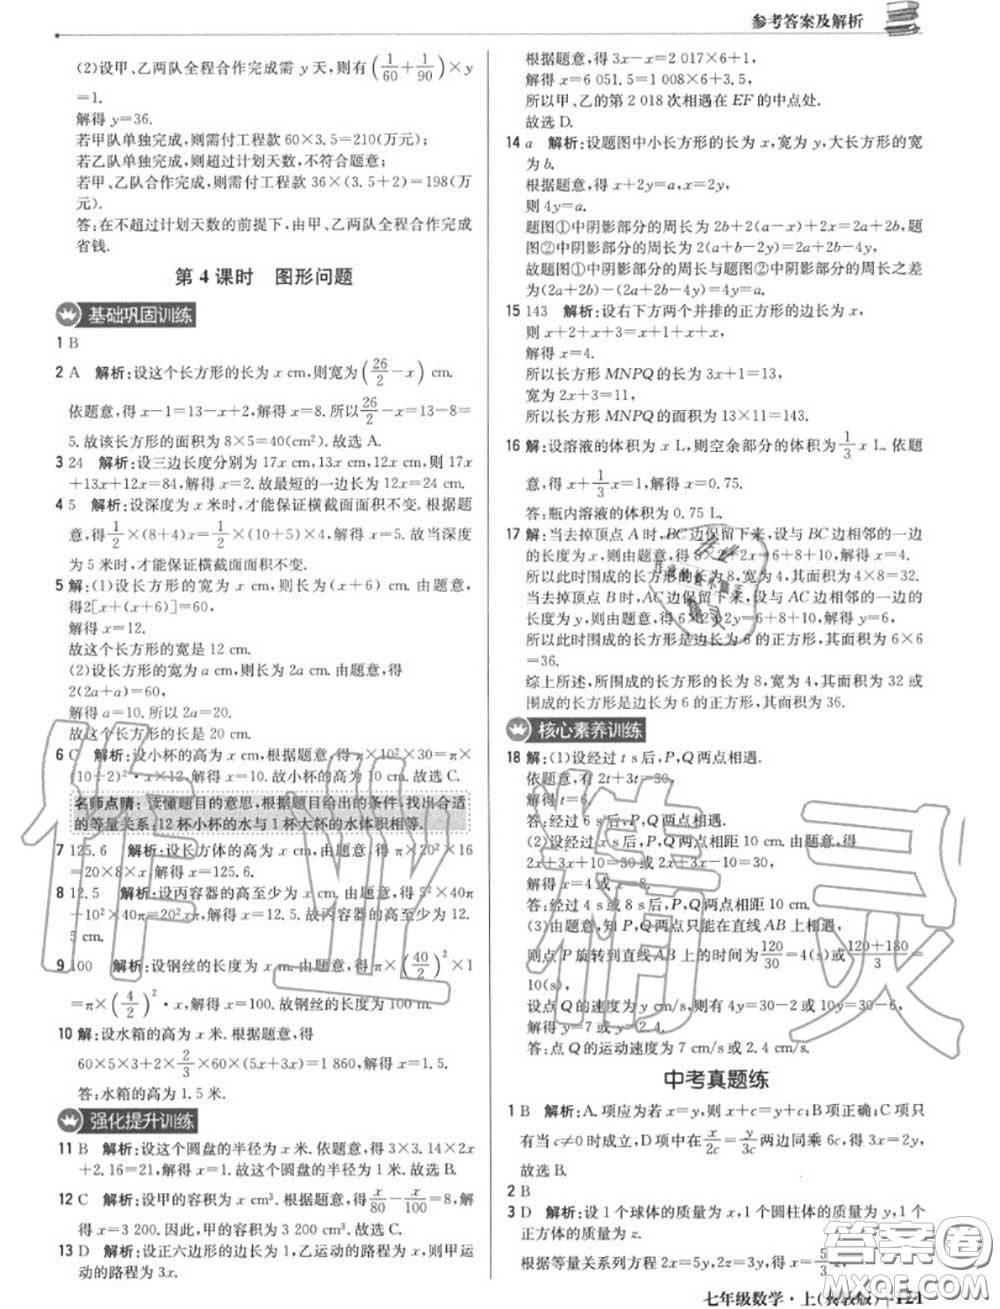 参考答案及解析
(2)设甲、乙两队全程合作完成需 y 天,则有(1/60+1/90)×y
=1.
解得 y=36.
若甲队单独完成,则需付工程款 60×3.5=210(万元);
若乙队单独完成,则超过计划天数,不符合题意;
若甲、乙队合作完成,则需付工程款 36×(3.5+2)=198(万
元).
答:在不超过计划天数的前提下,由甲、乙两队全程合作完成
省钱.
第 4 课时 图形问题
基础巩固训练
1 B
2 A 解析:设这个长方形的长为 x cm,则宽为(26/2-x) cm.
依题意,得 x-1=13-x+2,解得 x=8. 所以26/2-x=13-8=
5. 故该长方形的面积为 8×5=40(cm²). 故选 A.
3 24 解析:设三边长度分别为 17x cm,13x cm,12x cm,则 17x
+13x+12x=84,解得 x=2. 故最短的一边长为 12x=24 cm.
4 5 解析:设深度为 x 米时,才能保证横截面面积不变. 根据题
意,得1/2×(8+4)x=1/2×(10+5)×4,解得 x=5. 故当深度
为 5 米时,才能保证横截面面积不变.
5 解:(1)设长方形的宽为 x cm,则长为(x+6) cm. 由题意,
得2[x+(x+6)]=60,
解得 x=12.
故这个长方形的宽是 12 cm.
(2)设长方形的宽为 a cm,则长为 2a cm. 由题意,得
2(2a+a)=60,
解得 a=10. 所以 2a=20.
故这个长方形的长是 20 cm.
6 C 解析:设小杯的高为 x cm,根据题意,得 π×10²×30=π×
(10÷2)²·x×12,解得 x=10. 故小杯的高为 10 cm. 故选 C.
名师点睛:读懂题目的意思,根据题目给出的条件,找出合适
的等量关系:12 杯小杯的水与 1 杯大杯的水体积相等.
7 125.6 解析:设长方体的高为 x mm. 由题意,得 π×20²×16
=20×8×x,解得 x=125.6.
8 12.5 解析:设丙容器的高至少为 x cm. 由题意,得 5²×40π
+10²×40π=20²xπ,解得 x=12.5. 故丙容器的高至少为 12.
5 cm.
9 100 解析:设钢丝的长度为 x cm. 根据题意,得 π×(40/2)²×1
=π×(4/2)²·x,解得 x=100. 故钢丝的长度为 100 m.
10 解:设水箱的高为 x 米. 根据题意,得
60×5×3+2×2/3×60×(5x+3x)=1 860,解得 x=1.5.
答:水箱的高为 1.5 米.
强化提升训练
11 B 解析:设这个圆盘的半径为 x 米. 依题意,得 3×3.14×2x
+2.16=21,解得 x=1. 故这个圆盘的半径为 1 米. 故选 B.
12 C 解析:设甲的容积为 x cm³. 根据题意,得x/80-x/100=8,解
得 x=3 200. 因此,甲的容积为 3 200 cm³. 故选 C.
13 D 解析:设正六边形的边长为 1,乙运动的路程为 x,则甲运
动的路程为 3x.
根据题意,得 3x-x=2 017×6+1,
解得 x=6 051.5=1 008×6+3.5,
所以甲、乙的第 2 018 次相遇在 EF 的中点处.
故选 D.
14 a 解析:设题图中小长方形的长为 x,宽为 y,大长方形的宽
为 b.
根据题意,得 x+2y=a,x=2y,
则 4y=a.
题图①中阴影部分的周长为 2b+2(a-x)+2x=2a+2b,题
图②中阴影部分的周长为 2(a+b-2y)=2a+2b-4y,
故题图①中阴影部分的周长与题图②中阴影部分的周长之差
为(2a+2b)-(2a+2b-4y)=4y=a.
15 143 解析:设右下方两个并排的正方形的边长为 x,
则 x+2+x+3=x+1+x+x,
解得 x=4.
所以长方形 MNPQ的长为 3x+1=13,
宽为 2x+3=11,
所以长方形 MNPQ 的面积为 13×11=143.
16 解:设溶液的体积为 x L,则空余部分的体积为1/3x L. 依题
意,得 x+1/3x=1,解得 x=0.75.
答:瓶内溶液的体积为 0.75 L.
17 解:当去掉顶点 A时,BC边保留下来,设与 BC边相邻的一边
的长度为 x,则由题意,得 8×2+2x=6+8+10,解得 x=4,
所以此时围成的长方形的长为 8,宽为 4,其面积为 4×8=32.
当去掉顶点 B时,AC边保留下来,设与 AC边相邻的一边的
长度为 y,则由题意,得 6×2+2y=6+8+10,解得 y=6,
所以此时围成的长方形是边长为 6 的正方形,其面积为 6×6
=36.
综上所述,所围成的长方形的长为 8,宽为 4,其面积为 32 或
围成的长方形是边长为 6 的正方形,其面积为 36.
核心素养训练
18 解:(1)设经过 t s 后,P,Q两点相遇.
依题意,有 2t+3t=30.
解得 t=6.
答:经过 6 s后,P,Q两点相遇.
(2)设经过 x s后,P,Q两点相距 10 cm. 由题意,得
2x+3x+10=30或 2x+3x-10=30,
解得 x=4 或 x=8.
答:经过 4 s或 8 s后,P,Q两点相距 10 cm.
(3)由题意,知 P,Q两点只能在直线 AB上相遇,
则点 P 旋转到直线 AB上的时间为120/30=4(s)或(120+180)/30=
10(s),
设点 Q的速度为 y cm/s,则有 4y=30-2 或 10y=30-6,
解得 y=7 或 y=2.4.
答:点 Q的运动速度为 7 cm/s 或 2.4 cm/s.
中考真题练
1 B 解析:A. 项应为若 x=y,则 x+c=y+c;B. 符合;C. 项只
有当 c≠0 时成立,D. 项两边同乘 6c,得 3x=2y,
故选 B.
2 B
3 D 解析:设 1 个球体的质量为 x,1 个圆柱体的质量为 y,1 个
正方体的质量为 z.
根据等量关系列方程 2x=5y,2z=3y,
七年级数学·上(冀教版) 121
作业精灵
答案圈